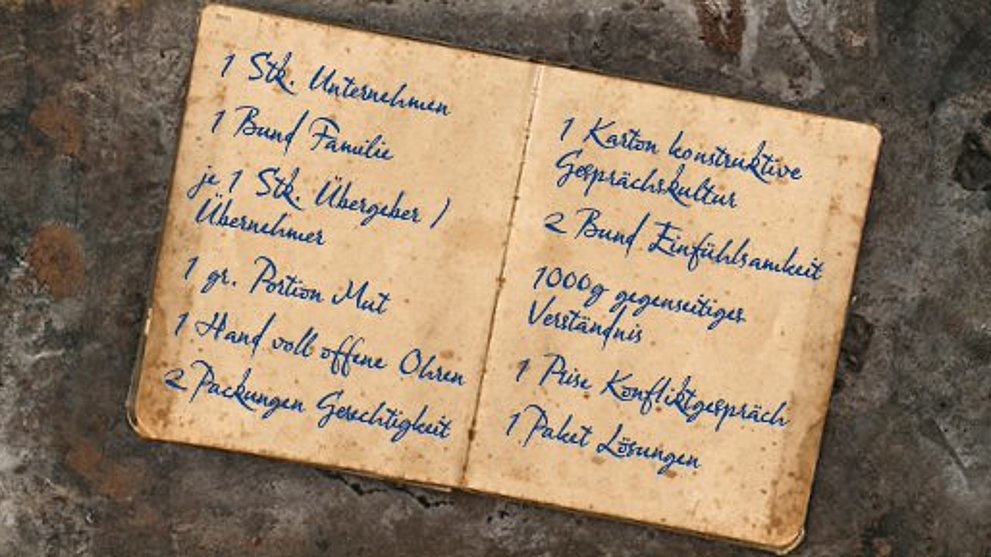 1 Stk. Unternehmen
1 Bund Familie
je 1 Stk. Übergeber /
Übernehmer
1 gr. Portion Mut
1 Hand voll offene Ohren
2 Packungen Gerechtigkeit
1 Karton konstruktive
Gesprächskultur
2 Bund Einfühlsamkeit
1000g gegenseitiges
Verständnis
1 Prise Konfliktgespräch
1 Paket Lösungen